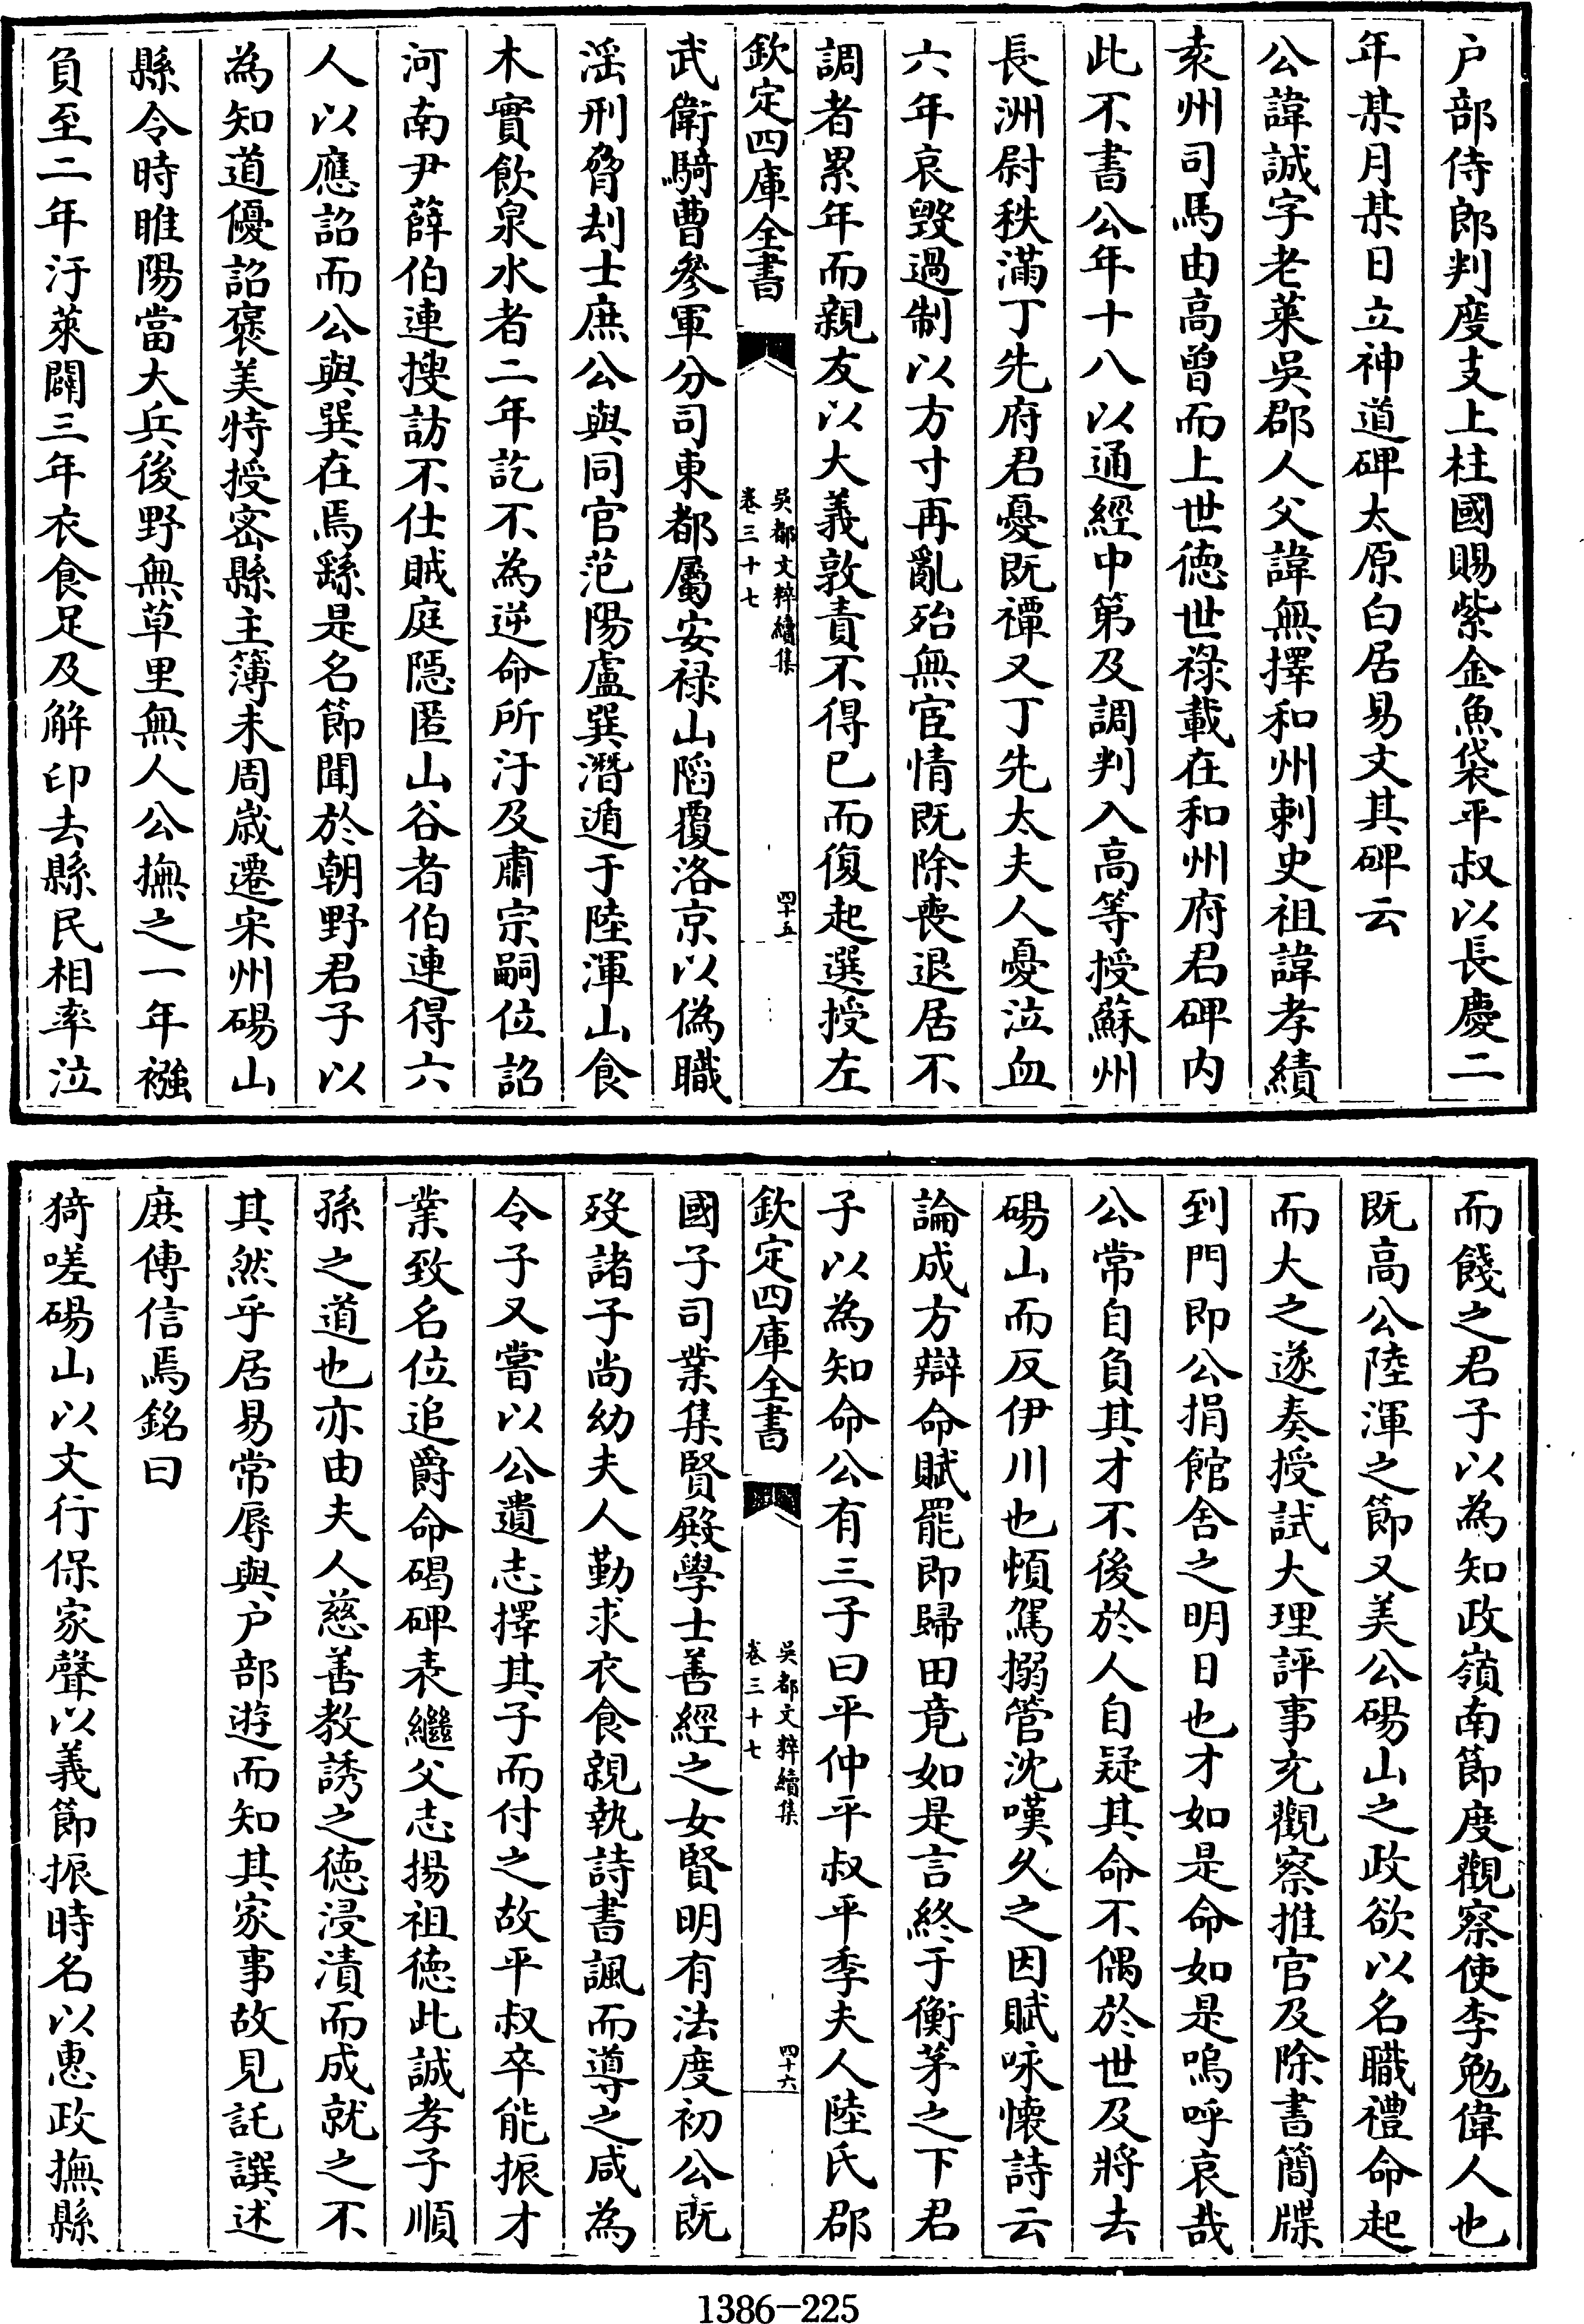 户部侍郎判度支上柱國賜紫金魚袋平叔以長慶二
年某月某日立神道碑太原白居易文其碑云
公諱誠字老萊吳郡人父諱無擇和州刺史祖諱孝績
袁州司馬由高曾而上世德世祿載在和州府君碑内
此不書公年十八以通經中第及調判入高等授蘇州
長洲尉秩滿丁先府君憂既禫又丁先太夫人憂泣血
六年哀毀過制以方寸再亂殆無宦情既除喪退居不
調者累年而親友以大義敦責不得已而復起選授左
欽定四庫全書
吳都文粹續集
卷三十七
四十五
武衛騎曹參軍分司東都屬安禄山陷覆洛京以偽職
淫刑脅刦士庶公與同官范陽盧巽潛遁于陸渾山食
木實飲泉水者二年訖不為逆命所汙及肅宗嗣位詔
河南尹薛伯連搜訪不仕賊庭隠匿山谷者伯連得六
人以應詔而公與巽在焉繇是名節聞於朝野君子以
為知道優詔褒美特授宻縣主簿未周歲遷宋州碭山
縣令時睢陽當大兵後野無草里無人公撫之一年襁
負至二年汙萊闢三年衣食足及解印去縣民相率泣
而餞之君子以為知政嶺南節度觀察使李勉偉人也
既高公陸渾之節又美公碭山之政欲以名職禮命起
而大之遂奏授試大理評事充觀察推官及除書簡牒
到門即公捐館舍之明日也才如是命如是嗚呼哀哉
公常自負其才不後於人自疑其命不偶於世及將去
碭山而反伊川也頓駕搦管沈嘆久之因賦咏懷詩云
論成方辯命賦罷即歸田竟如是言終于衡茅之下君
子以為知命公有三子曰平仲平叔平季夫人陸氏郡
欽定四庫全書
吳都文粹續集
卷三十七
四十六
國子司業集賢殿學士善經之女賢明有法度初公既
歿諸子尚幼夫人勤求衣食親執詩書諷而導之咸為
令子又嘗以公遺志擇其子而付之故平叔卒能振才
業致名位追爵命碣碑表繼父志揚祖徳此誠孝子順
孫之道也亦由夫人慈善教誘之徳浸漬而成就之不
其然乎居易常辱與户部遊而知其家事故見託譔述
庶傳信焉銘曰
猗嗟碭山以文行保家聲以義節振時名以惠政撫縣
1386-225